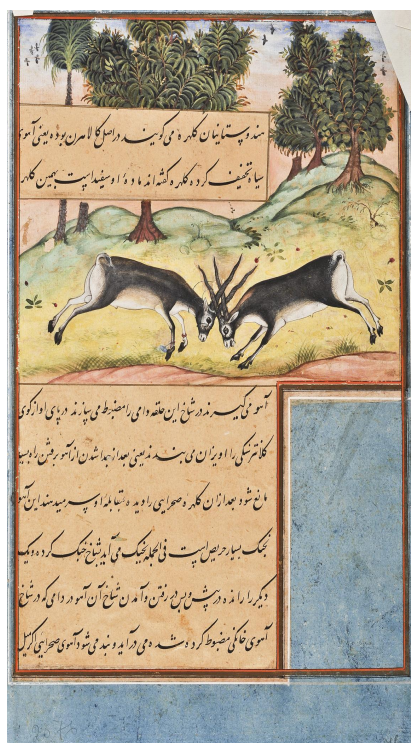 هندوستانیان کلهره می گویند در اصل کالا هرن بوده یعنی آهوی
سیاه تخفیف کرده کلهره گفته اند مادهٔ او سفید است بهمین کلهر
آهو می گیرند در شاخ این حلقه دامی را مضبوط می سازند در پای او از گوی
کلانتر سنگی را اویزان می بندند یعنی بعد از جدا شدن از آهو برفتن راه بسیار
مانع شود بعد از ان کلهره صحرایی را دیده بمقابلهٔ او سر میدهند این آهو
بجنگ بسیار حریص است فی الحال بجنگ می آید بشاخ جنگ کرده و یک
دیگر را رانده در پیش و پس در رفتن و آمدن شاخ آن آهو در دامی که در شاخ
آهوی خانگی مضبوط کرده شده می در آید و بند می شود آهوی صحرایی اگر میل